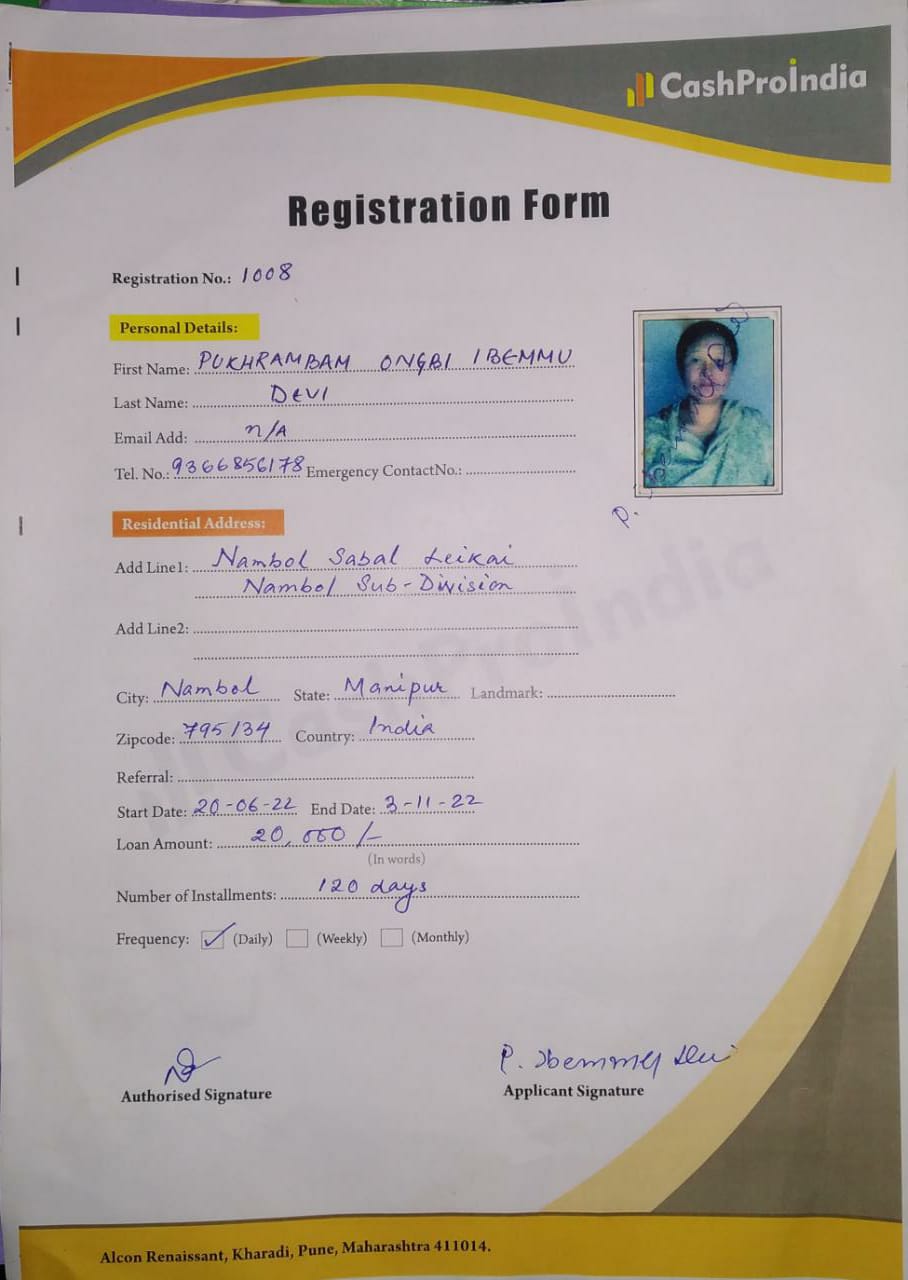 CashProIndia
Registration Form
Registration No.: 1008
Personal Details:
First Name: PUKHRAMBAM ONGBI IBEMMU
Last Name: DEVI
Email Add: n/A
Tel. No.: 9366856178 Emergency ContactNo.:
Residential Address:
Add Line1: Nambol Sabal Leikai
Nambol Sub-Division
Add Line2:
City: Nambol State: Manipur Landmark:
Zipcode: 795134 Country: India
Referral:
Start Date: 20-06-22 End Date: 3-11-22
Loan Amount: 20,000/-
(In words)
Number of Installments: 120 days
Frequency: (Daily) (Weekly) (Monthly)
P. Ibemmu Devi
Authorised Signature
Applicant Signature
CashProIndia
Alcon Renaissant, Kharadi, Pune, Maharashtra 411014.